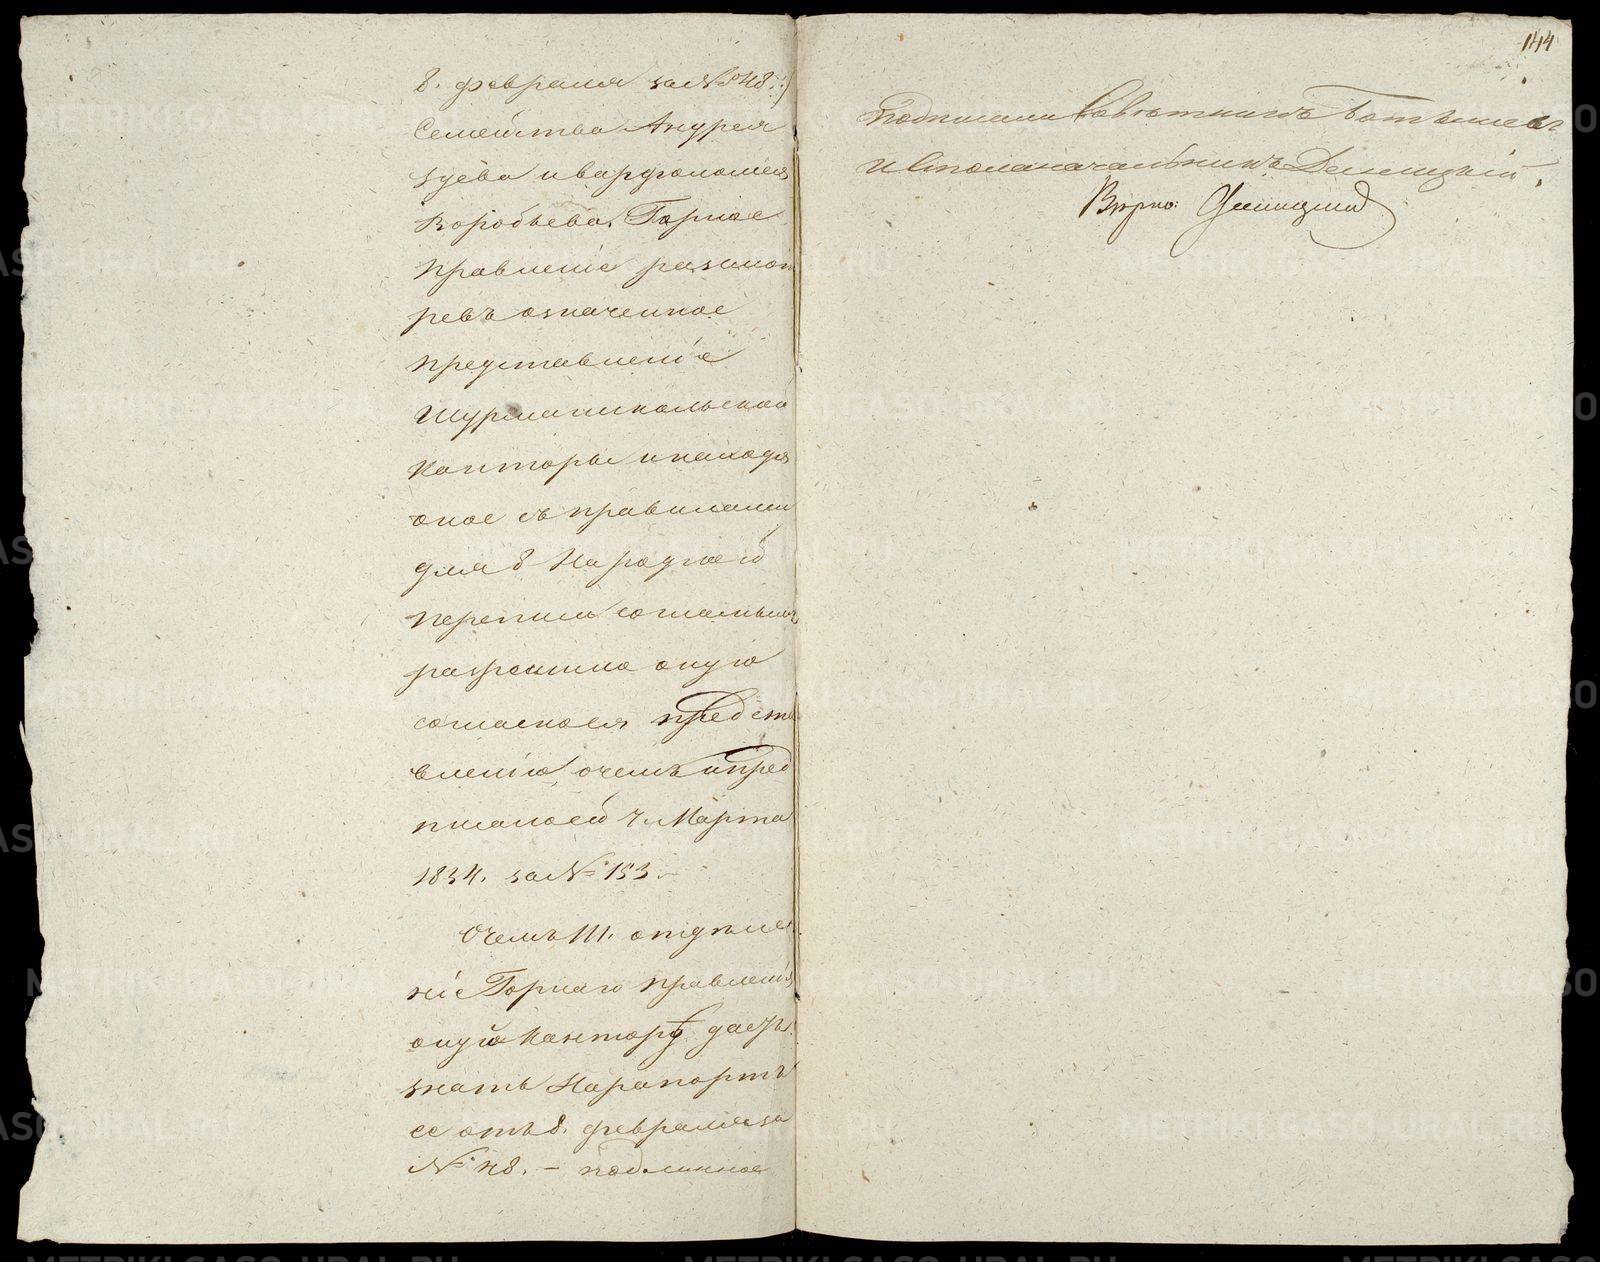 8. февраля за № 48.)
Семейства Андрея
Зуева и варфоломея
Воробьева, Горное
Правленіе разсмот
ревъ означенное
представленіе
Шурманикольской
Канторы и находя
оное съ правилами
для 8 Народной
переписи
оную
согласно ея предста
вленію о чемъ и пред
писано ей 7 Марта
1834. за № 153.—
О чемъ III. отделе
ніе Горнаго правленія
оную Кантору даетъ
знать На рапортъ
ее отъ 8. февраля за
№ 48. — подлинное
144
Подписали Советникъ
и Столоначальникъ
Верно: